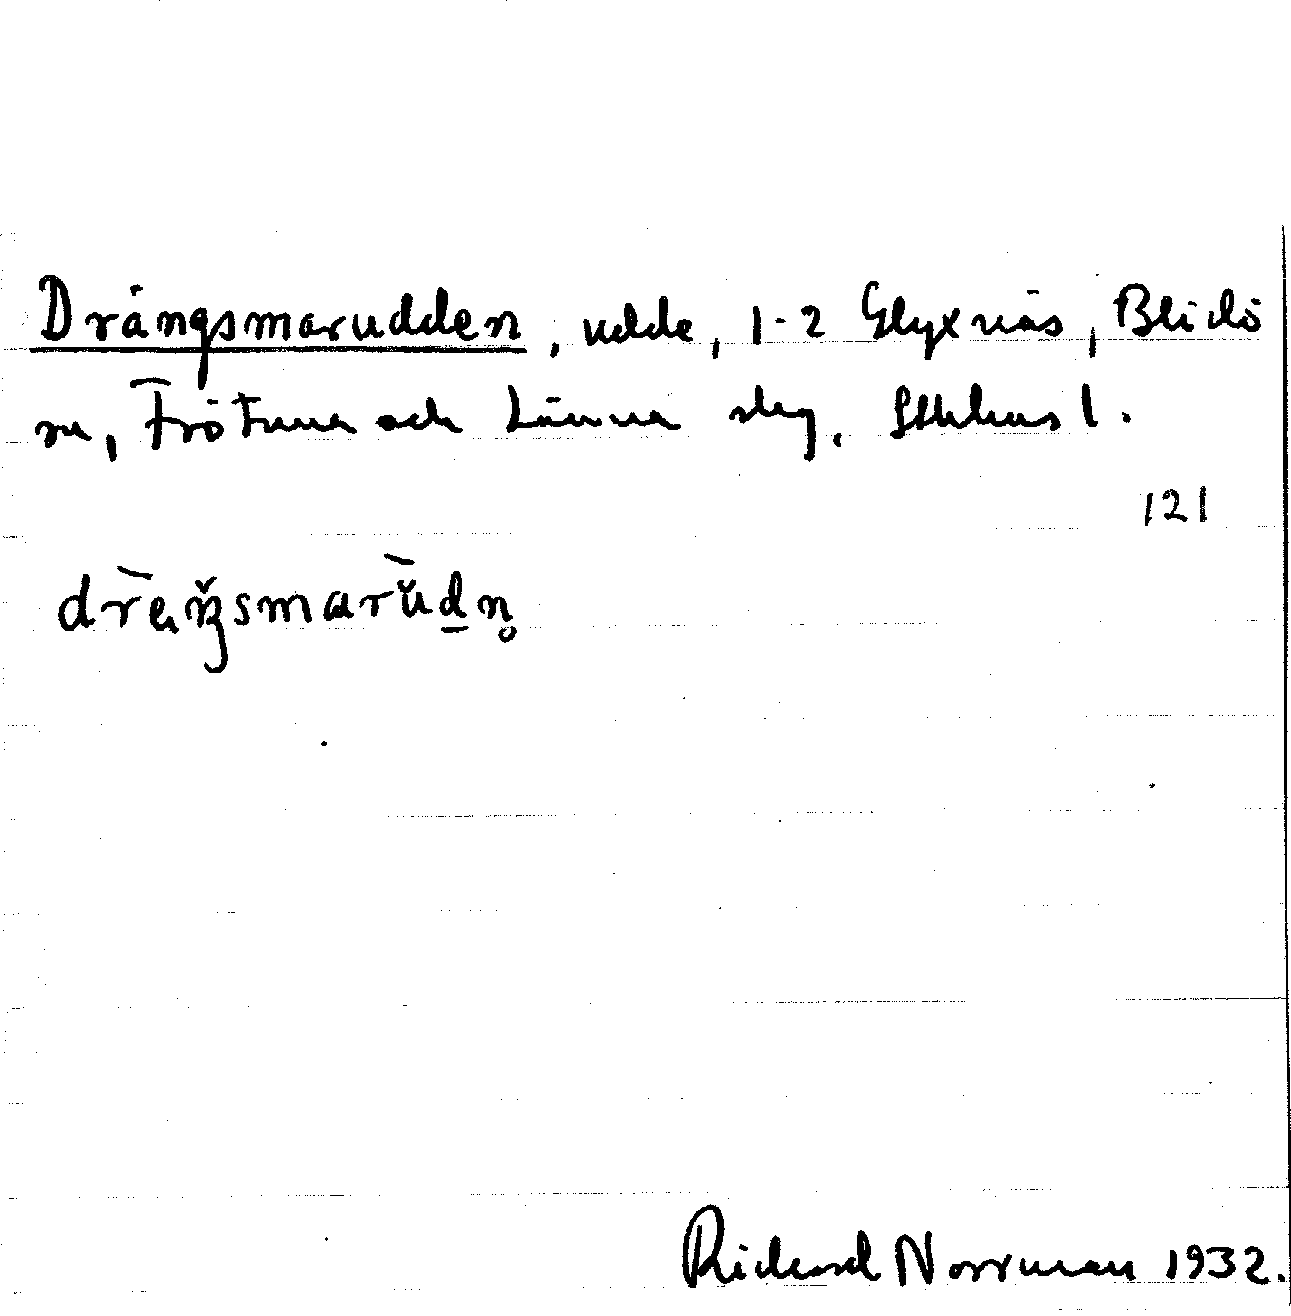 Drängsmarudden, udde, 1-2 Glyxnäs, Blidö
sn, Frötuna och Länna skg, Sthlms l.
121
Richard Norrman 1932.